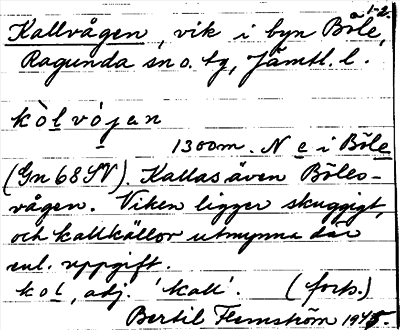 1-2.
Kallvågen, vik i byn Böle,
Ragunda sn o. tg, Jämtl. l.
kòlvòjan
1300m. N e i Böle
(Gn 68 SV) Kallas även Böles-
vågen. Viken ligger skuggigt,
och kallkällor utmynna där
enl. uppgift.
kol, adj. 'kall'. (forts.)
Bertil Flemström 1948.